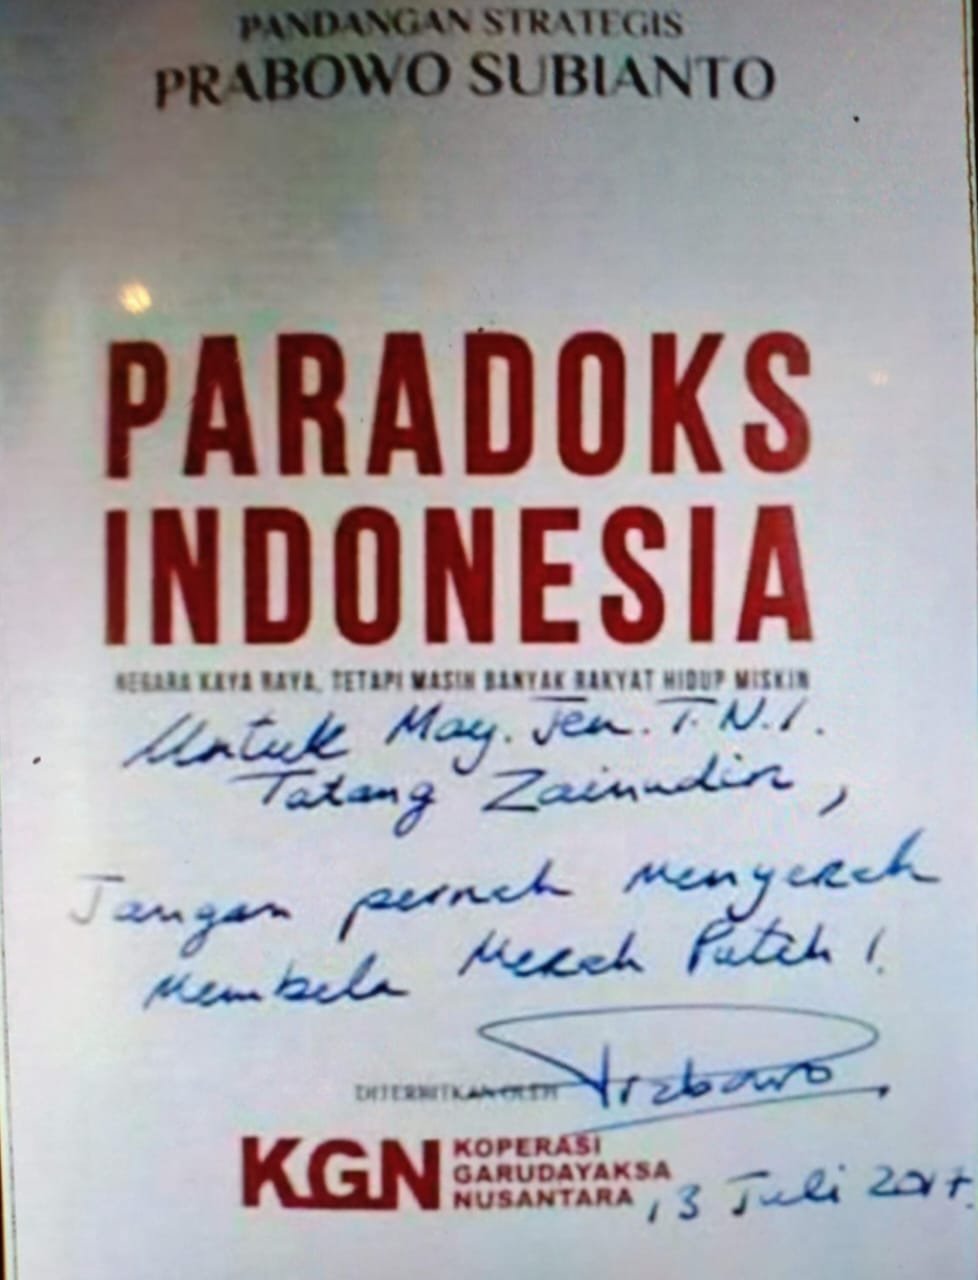 PANDANGAN STRATEGIS
PRABOWO SUBIANTO
PARADOKS
INDONESIA
NEGARA KAYA RAYA, TETAPI MASIH BANYAK RAKYAT HIDUP MISKIN
Untuk May. Jen. T.N.I.
Tatang Zainudin,
Jangan pernah menyerah
membela Merah Putih!
Prabowo
DITERBITKAN OLEH
KGN KOPERASI
GARUDAYAKSA
NUSANTARA
13 Juli 2017.